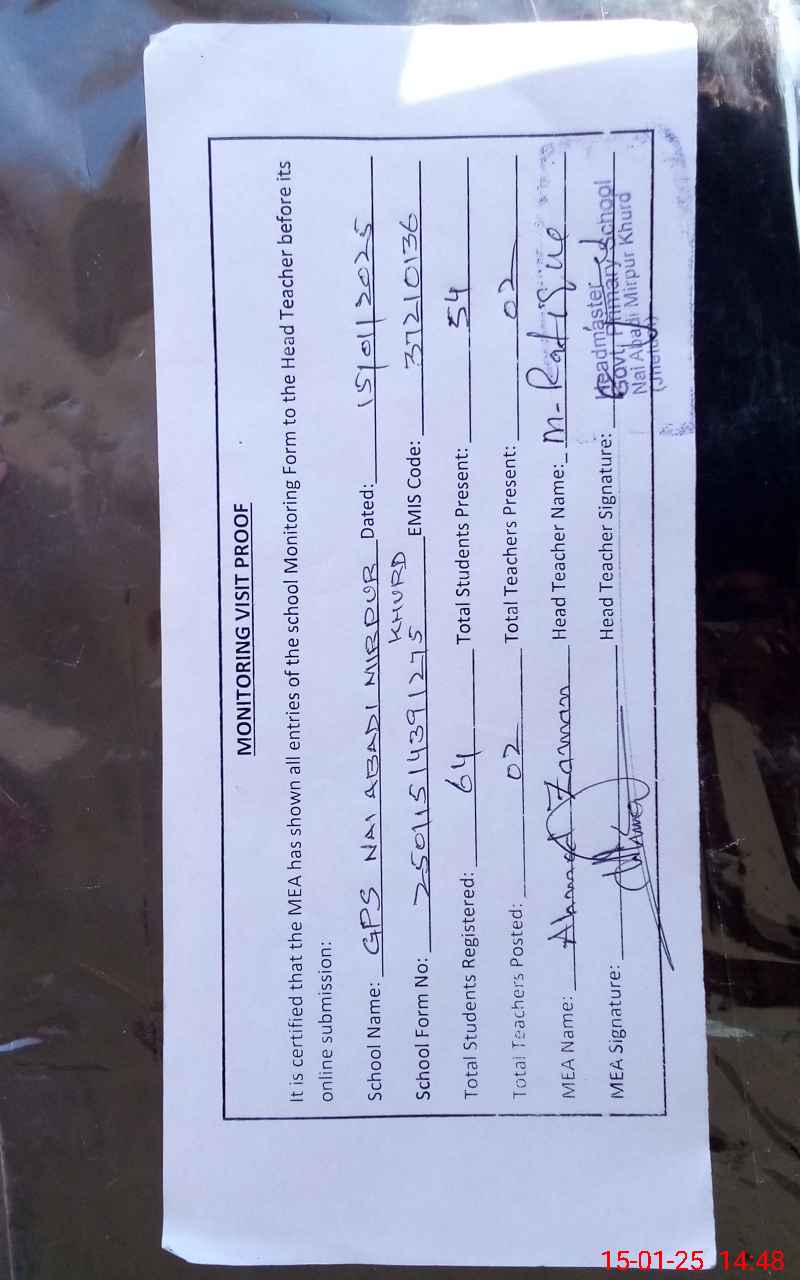 MONITORING VISIT PROOF
It is certified that the MEA has shown all entries of the school Monitoring Form to the Head Teacher before its
online submission:
School Name: GPS NAI ABADI MIRPUR KHURD Dated: 15/01/2025
School Form No: 25011514391275 EMIS Code: 37210136
Total Students Registered: 64 Total Students Present: 54
Total Teachers Posted: 02 Total Teachers Present: 02
MEA Name: Ahmed Zaman Head Teacher Name: M. Rafique
MEA Signature: Head Teacher Signature:
Headmaster
Govt. Primary School
Nai Abadi Mirpur Khurd
15-01-25 14:48